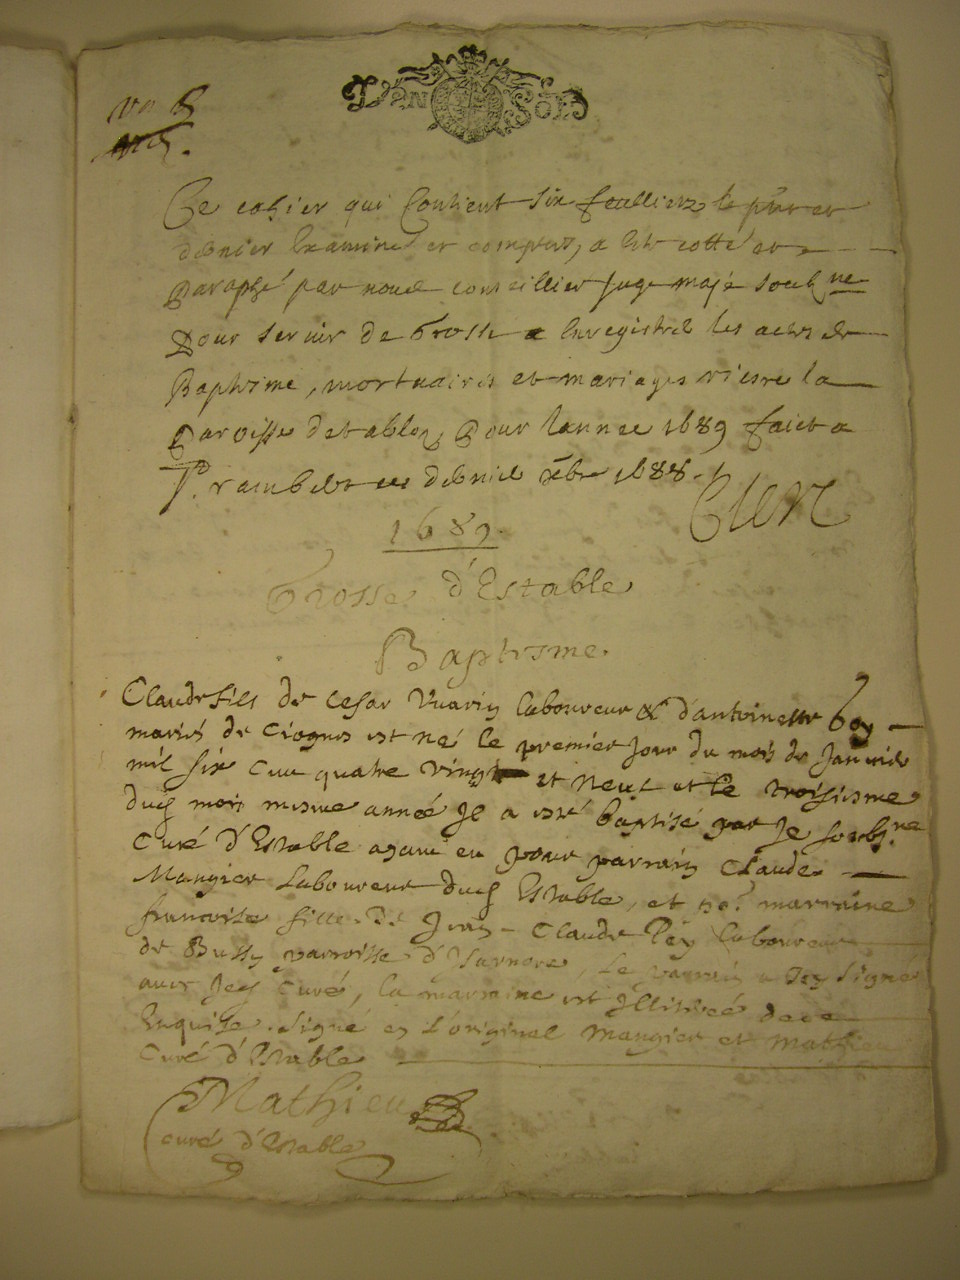 VN SOL
Ce cahier qui Contient six feulliers le pmer et
dernier Examiné et comptés, a esté cotté et
Paraphé par nous conseillier Juge maje soubz ne
Pour servir de Grosse a Enregistrer les actes de
Baptesme, mortuaires et mariages riesre la
Parroisse detablez Pour Lannee 1689 faict a
St. rambert le dernier xbre 1688.
1689.
Grosse d'Estable
Baptisme.
Claude fils de Cesar Vuarin laboureur & d'antoinette Goy
mariés de Ciognes est né le premier Jour du mois de Janvier
mil six cens quatre vingt et neuf et le troisiesme
dud mois mesme année Il a esté baptisé par Je soubz. né
Curé d'Estable ayant eu pour parrain Claude
Mangier Laboureur dud Estable, et po.r marraine
francoise fille de Jean-Claude Pey laboureur
de Bussy parroisse d'Isarnore, Le parrain a Icy Signé
avec Jed Curé, la marraine est Illiterée de ce
Enquise. Signé en L'original Mangier et Mathieu
Curé d'Estable
Mathieu
curé d'Estable